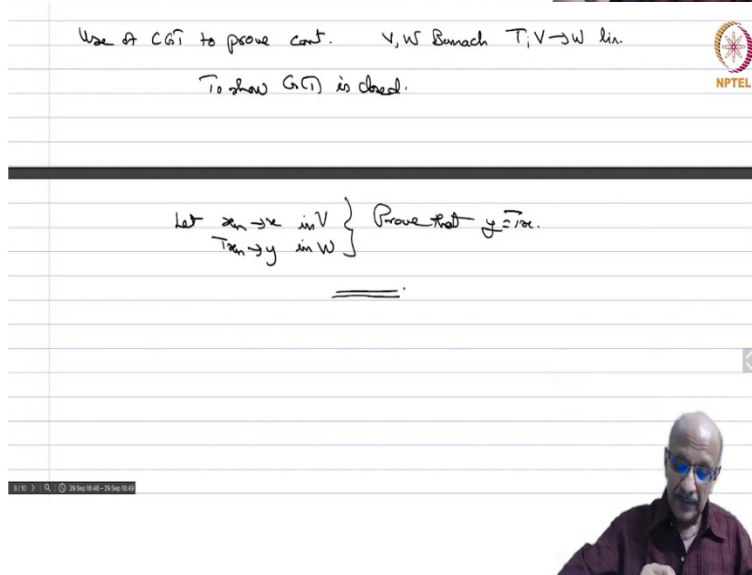 Use of CGT to prove cont. V, W Banach T: V→W lin.
To show G(T) is closed.
NPTEL
Let xn → x in V } Prove that y = Tx.
Txn → y in W
8/10 29 Sep 18:48 – 29 Sep 18:49